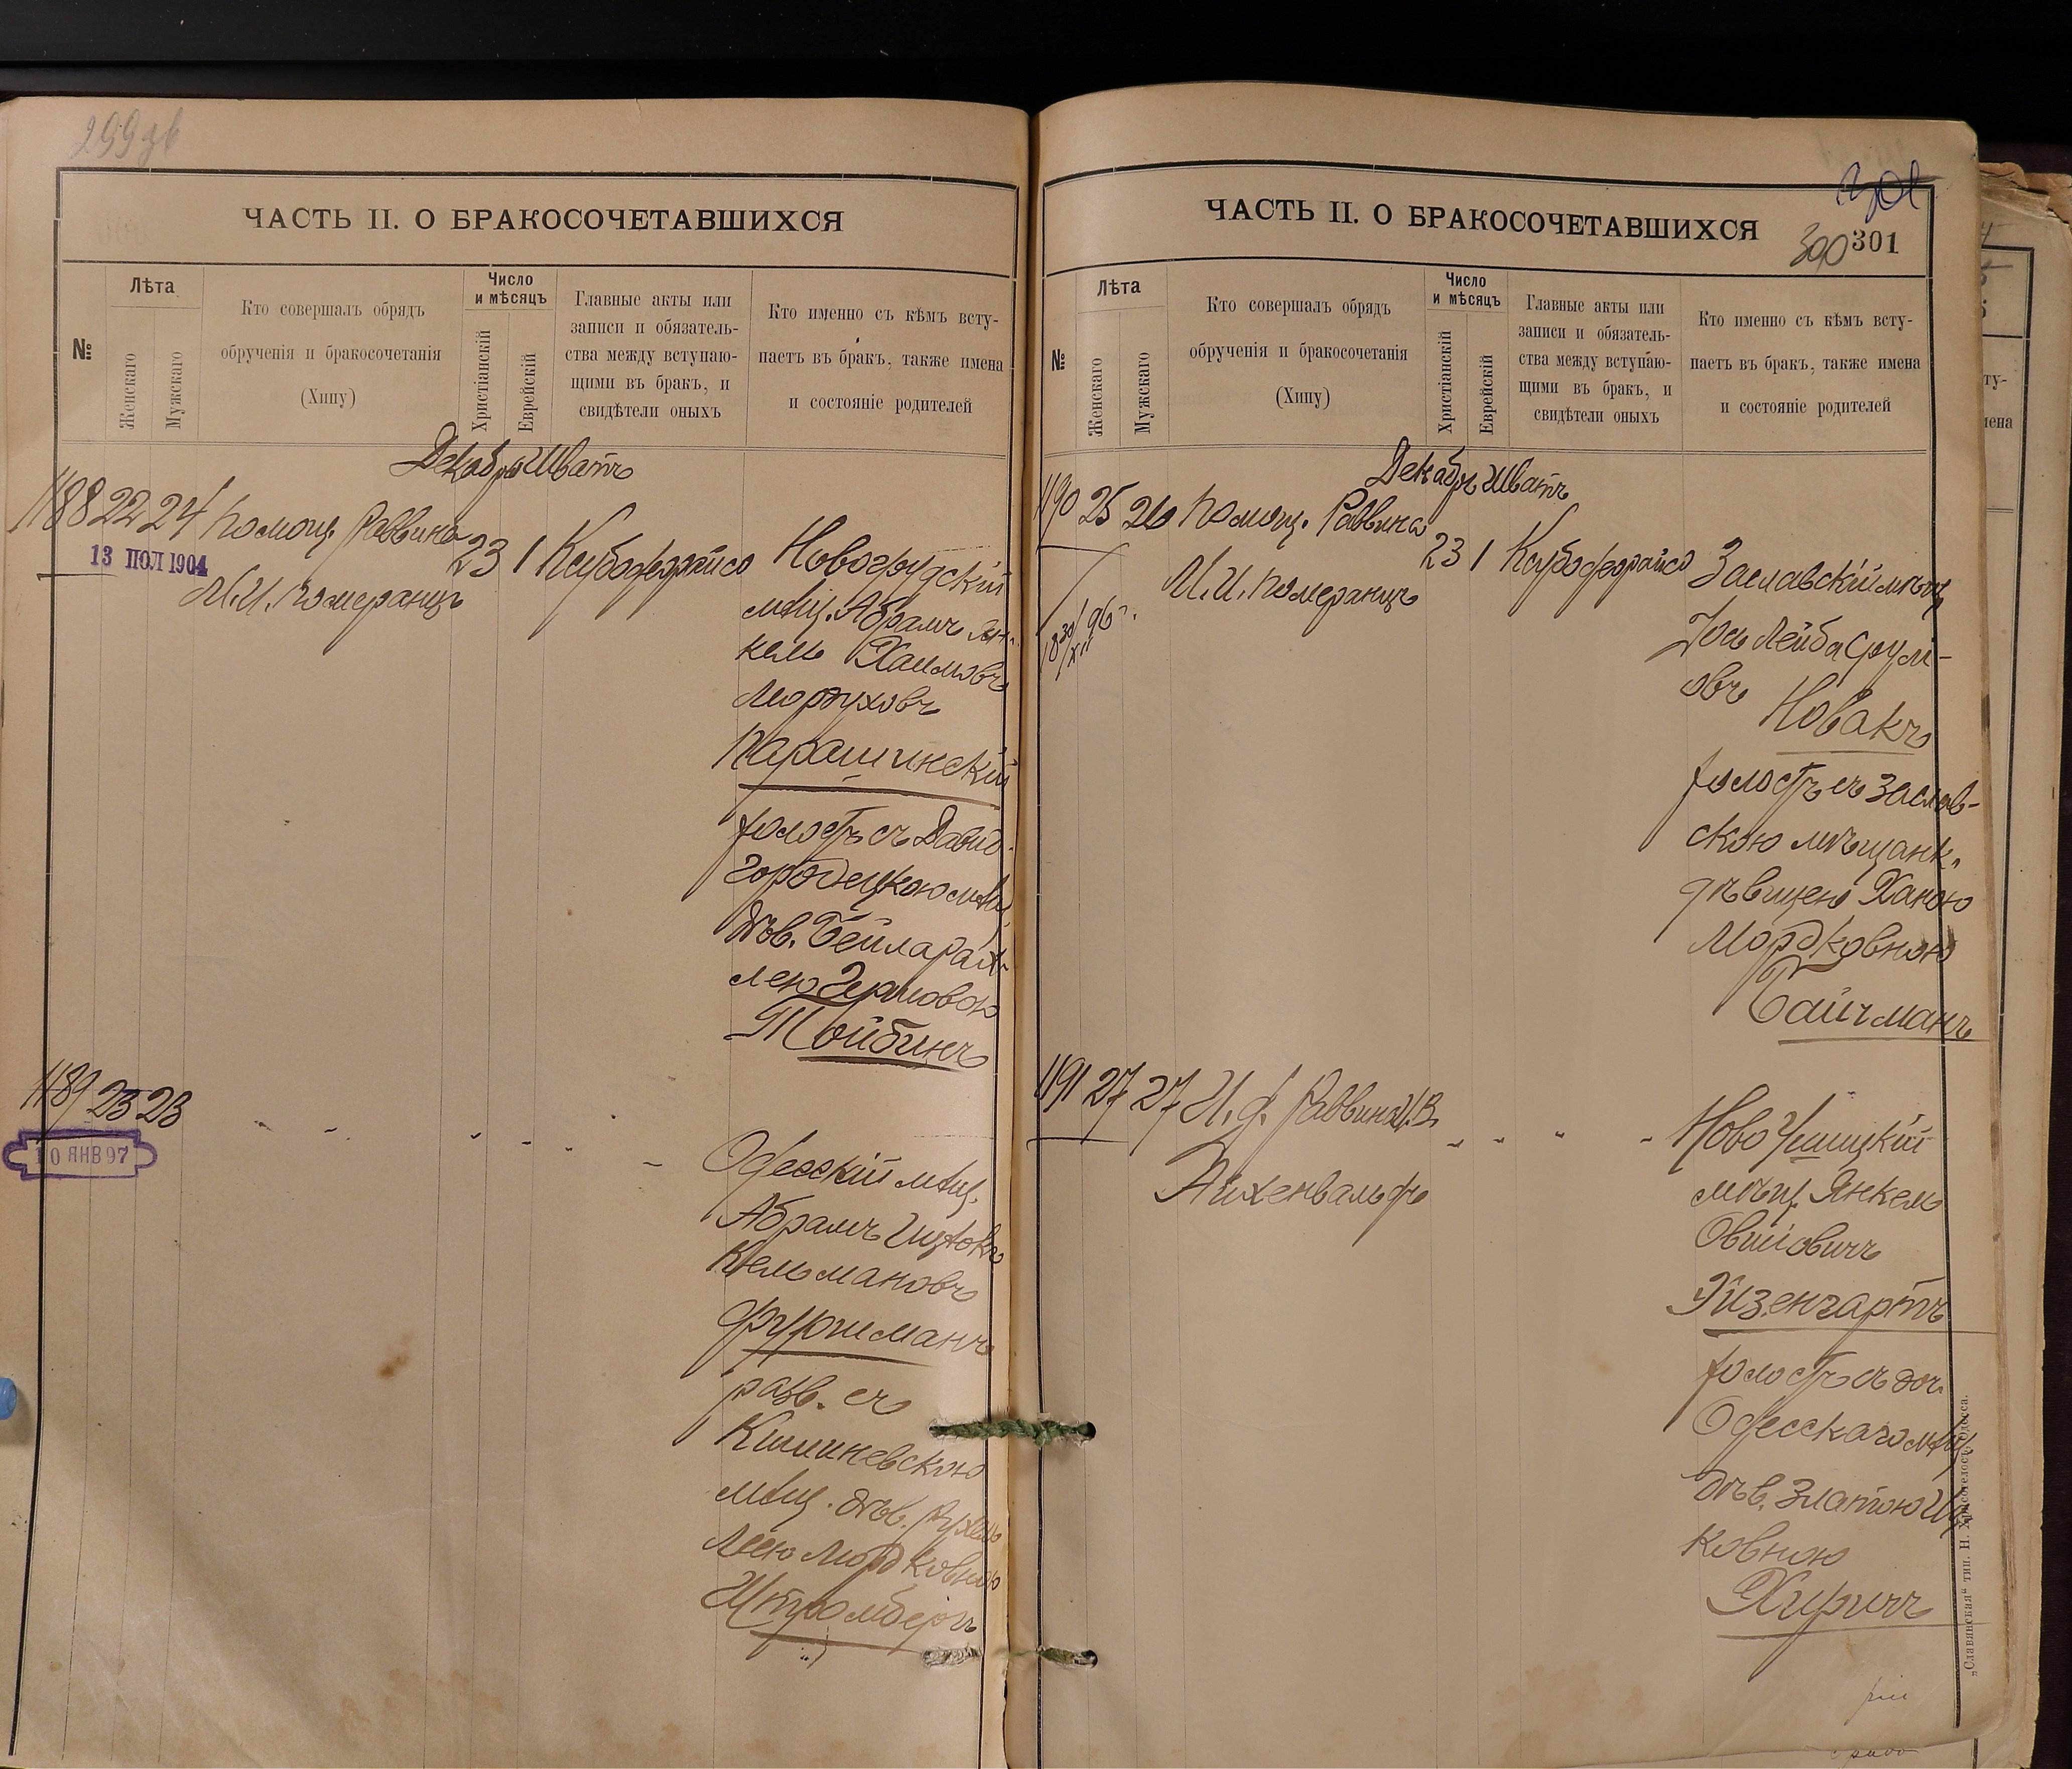 299 зв
ЧАСТЬ II. О БРАКОСОЧЕТАВШИХСЯ
№
Лѣта
Женскаго
Мужскаго
Кто совершалъ обрядъ
обрученія и бракосочетанія
(Хипу)
Число
и мѣсяцъ
Христіанскій
Еврейскій
Главные акты или
записи и обязатель-
ства между вступаю-
щими въ бракъ, и
свидѣтели оныхъ
Кто именно съ кѣмъ всту-
паетъ въ бракъ, также имена
и состояніе родителей
Декабрь Шватъ
1188 22 24 Помощ. Раввина 23 1 Кубофрайсо Новогрудскій
13 ПОЛ 1904
М. И. Померанцъ
мѣщ. Абрамъ Ян-
кель Хаимовъ
Мордуховъ
Парашинскій
холостъ съ Давид-
городецкою мѣщ.
дѣв. Бейла
лею
Тойбинъ
1189 23 23
10 ЯНВ 97
Одесскій мѣщ.
Абрамъ Ицковъ
Кельмановъ
Фурманъ
разв. съ
Кишиневскою
мѣщ. дѣв. Рухлю
Лею Мордковною
Штромбергъ
ЧАСТЬ II. О БРАКОСОЧЕТАВШИХСЯ
301
300 301
№
Лѣта
Женскаго
Мужскаго
Кто совершалъ обрядъ
обрученія и бракосочетанія
(Хипу)
Число
и мѣсяцъ
Христіанскій
Еврейскій
Главные акты или
записи и обязатель-
ства между вступаю-
щими въ бракъ, и
свидѣтели оныхъ
Кто именно съ кѣмъ всту-
паетъ въ бракъ, также имена
и состояніе родителей
Декабрь Шватъ
1190 25 26 Помощ. Раввина 23 1 Кубофрайсо Заславскій мѣщ.
М. И. Померанцъ
18 30/XII 96 г.
Лейба Срули-
овъ Новакъ
холостъ съ Заслав-
скою мѣщанк.
дѣвицею Ханою
Мордковною
Байчманъ
1191 27 27 И. д. Раввина
Айхенвальдъ
Ново Ушицкій
мѣщ. Янкель
Овшіовичъ
Эйзенгартъ
холостъ съ доч.
Одесскаго мѣщ.
дѣв. Златою Иц-
ковною
Хиричъ
„Славянская“ тип. Н. Хрисогелосъ, Одесса.